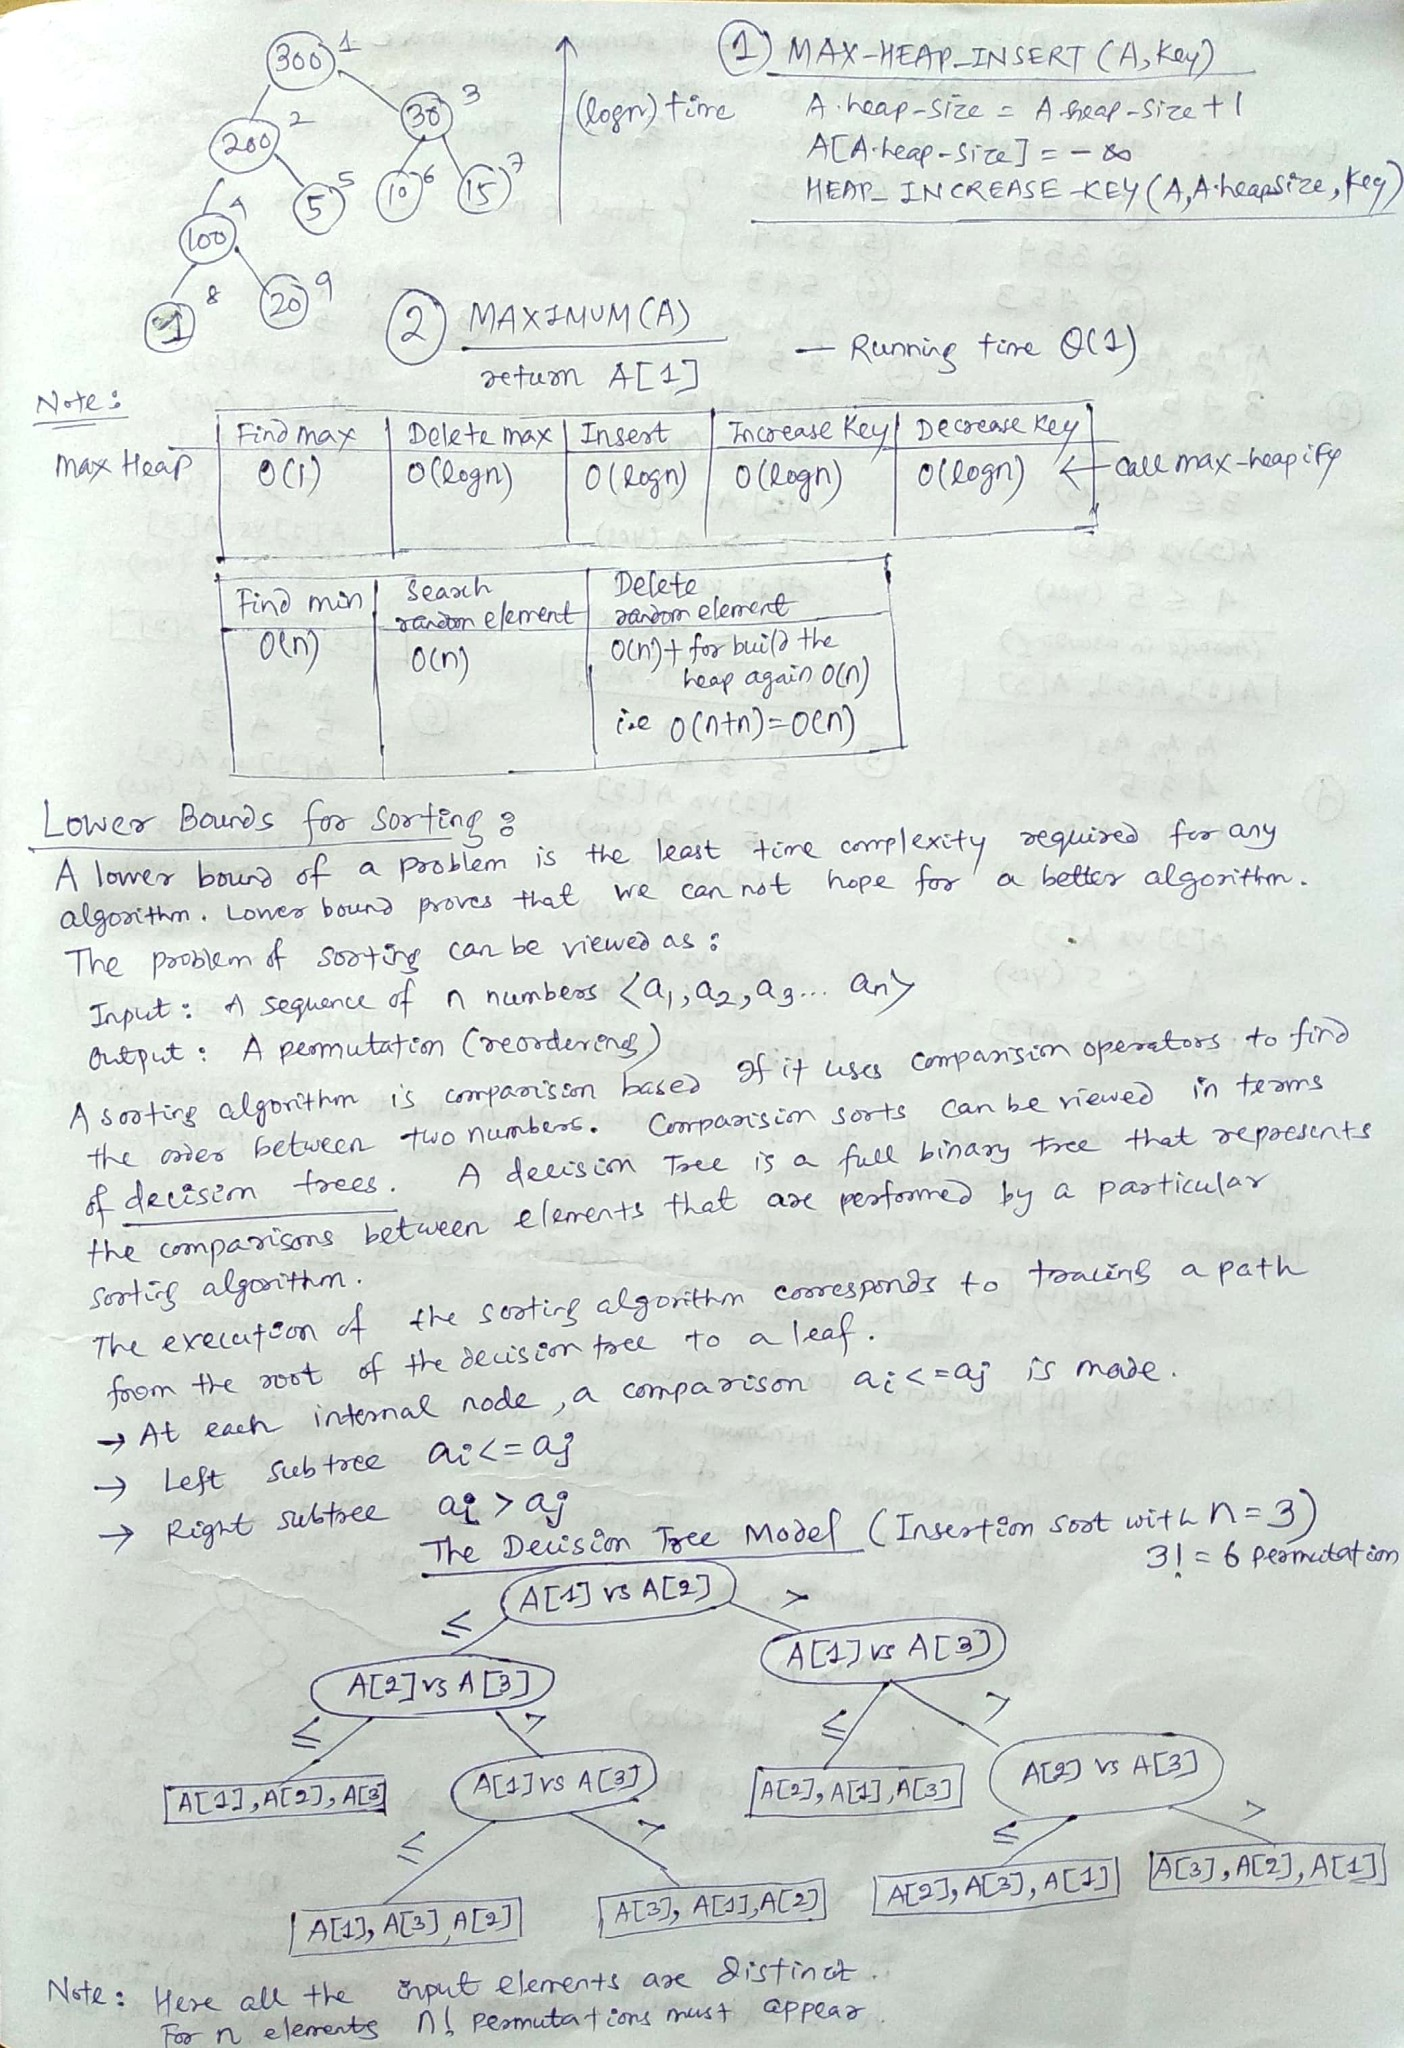 300 1
200 2
30 3
100 4
5 5
10 6
15 7
8
20 9
(logn) time
① MAX-HEAP_INSERT (A, Key)
A.heap-size = A.heap-size + 1
A[A.heap-size] = -∞
HEAP_INCREASE-KEY(A, A.heapsize, Key)
② MAXIMUM(A)
return A[1]
— Running time Θ(1)
Note:
Find max | Delete max | Insert | Increase Key | Decrease Key
Max Heap O(1) | O(logn) | O(logn) | O(logn) | O(logn) ← call max-heapify
Find min | Search random element | Delete random element
O(n) | O(n) | O(n)+ for build the
heap again O(n)
i.e O(n+n)=O(n)
Lower Bounds for Sorting:
A lower bound of a problem is the least time complexity required for any
algorithm. Lower bound proves that we can not hope for a better algorithm.
The problem of sorting can be viewed as:
Input: A sequence of n numbers <a1, a2, a3... an>
Output: A permutation (reordering)
A sorting algorithm is comparision based If it uses comparision operators to find
the order between two numbers. Comparision sorts can be viewed in terms
of decision trees. A decision Tree is a full binary tree that represents
the comparisons between elements that are performed by a particular
sorting algorithm.
The execution of the sorting algorithm corresponds to tracing a path
from the root of the decision tree to a leaf.
→ At each internal node, a comparison ai<=aj is made.
→ Left subtree ai<=aj
→ Right subtree ai > aj
The Decision Tree Model (Insertion sort with n=3)
3! = 6 permutation
A[1] vs A[2]
≤ >
A[2] vs A[3] A[1] vs A[3]
≤ > ≤ >
A[1], A[2], A[3] A[1] vs A[3] A[2], A[1], A[3] A[2] vs A[3]
≤ > ≤ >
A[1], A[3] A[2] A[3], A[1], A[2] A[2], A[3], A[1] A[3], A[2], A[1]
Note: Here all the input elements are distinct.
For n elements n! permutations must appear.